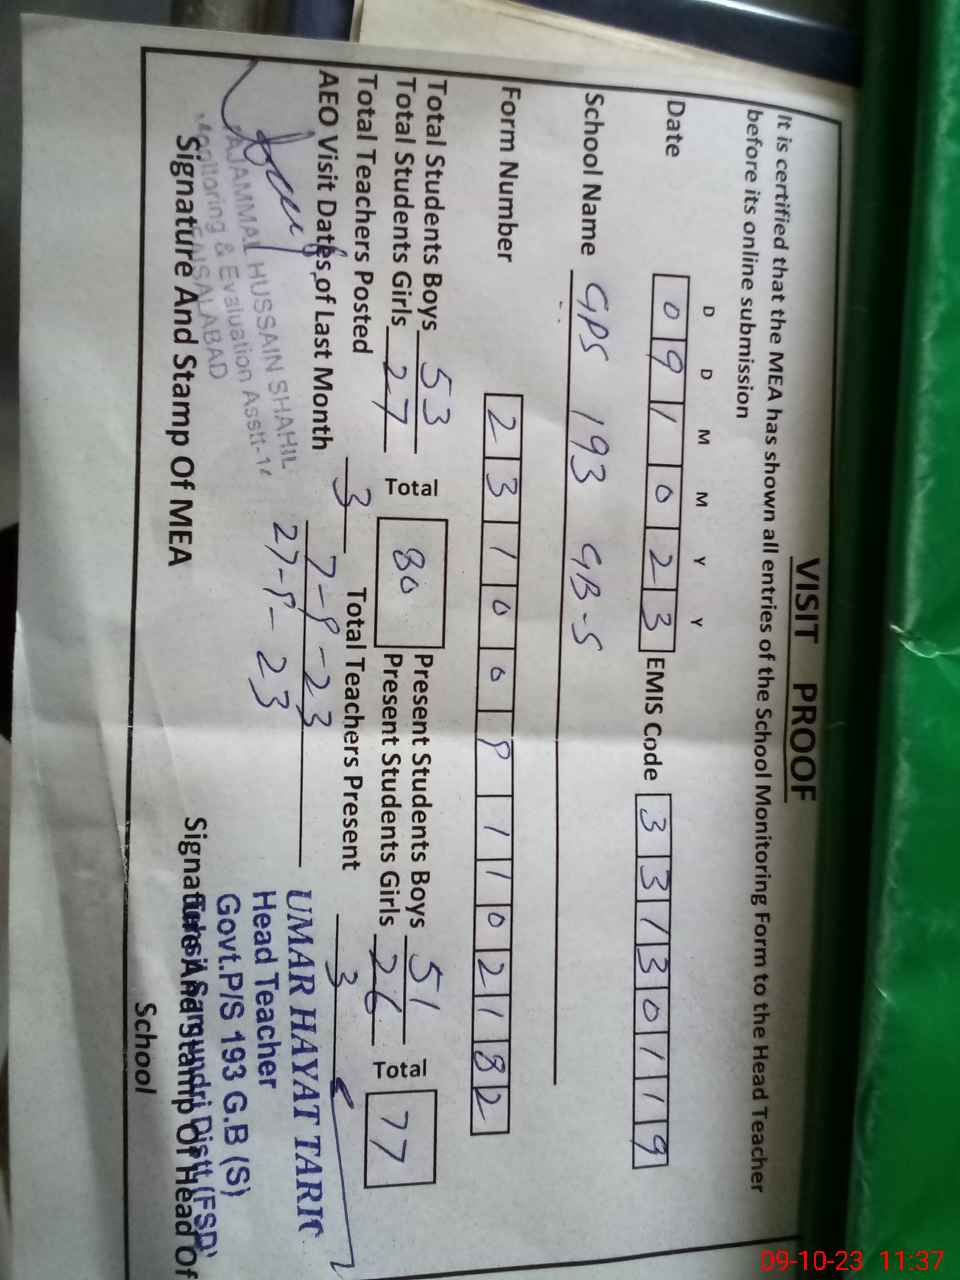 VISIT PROOF
It is certified that the MEA has shown all entries of the School Monitoring Form to the Head Teacher
before its online submission
D D M M Y Y
Date 0 9 1 0 2 3 EMIS Code 3 3 1 3 0 1 1 9
School Name GPS 193 GB-S
Form Number 2 3 1 0 0 9 1 1 0 2 1 8 2
Total Students Boys 53 Total 80 Present Students Boys 51 Total 77
Total Students Girls 27 Present Students Girls 26
Total Teachers Posted 3 Total Teachers Present 3
AEO Visit Dates of Last Month 7-9-23
27-9-23
AJAMMAL HUSSAIN SHAHIL
Monitoring & Evaluation Asstt-
FAISALABAD
Signature And Stamp Of MEA
UMAR HAYAT TARIC
Head Teacher
Govt.P/S 193 G.B (S)
Samundri Distt (FSD)
Signature And Stamp Of Head Of
School
09-10-23 11:37